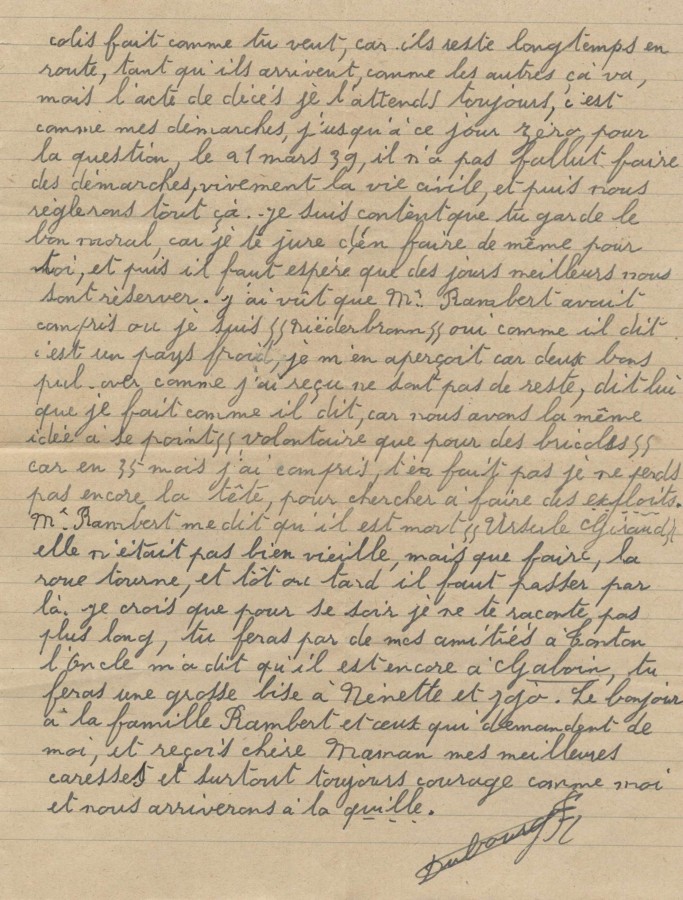 colis fait comme tu veut, car ils reste longtemps en
route, tant qu'ils arrivent, comme les autres çà va,
mais l'acte de décès je l'attends toujours, c'est
comme mes démarches, j'usqu'à ce jour zéro, pour
la question, le 21 mars 39, il n'a pas fallut faire
des démarches, vivement la vie civile, et puis nous
règlerons tout çà. - je suis content que tu garde le
bon moral, car jè te jure d'én faire de même pour
toi, et puis il faut espéré que des jours meilleurs nous
sont réserver. j'ai vût que Mr. Rambert avait
compris ou je suis "Niëderbronn" oui comme il dit
c'est un pays froid, je m'en aperçoit car deux bons
pul-over, comme j'ai reçu ne sont pas de reste, dit lui
que je fait comme il dit, car nous avons la même
idée à se point "volontaire que pour des bricoles"
car en 35 mois j'ai compris, t'en fait pas je ne perds
pas encore la tête, pour chercher à faire des exploits.
Mr. Rambert me dit qu'il est mort "Ursule Giraud"
elle n'était pas bien vieille, mais que faire, la
roue tourne, et tôt ou tard il faut passer par
là. je crois que pour se soir je ne te raconte pas
plus long, tu feras par de mes amitiés à Tonton
l'Oncle m'a dit qu'il est encore à Gaboin, tu
feras une grosse bise à Nénette et jojo. Le bonjour
à la famille Rambert et ceux qui demandent de
moi, et reçois chère Maman mes meilleures
caresses et surtout toujours courage comme moi
et nous arriverons à la quille.
Dubourg